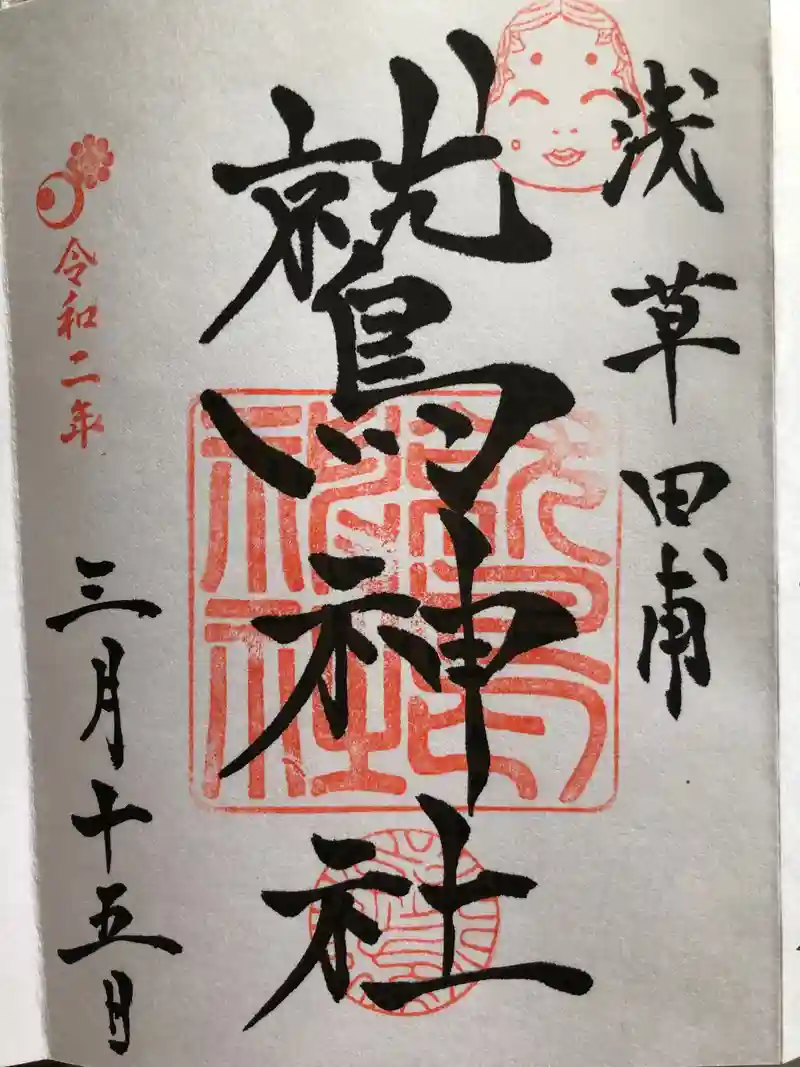 浅草田甫
鷲神社
鷲
神社
令和二年
三月十五日